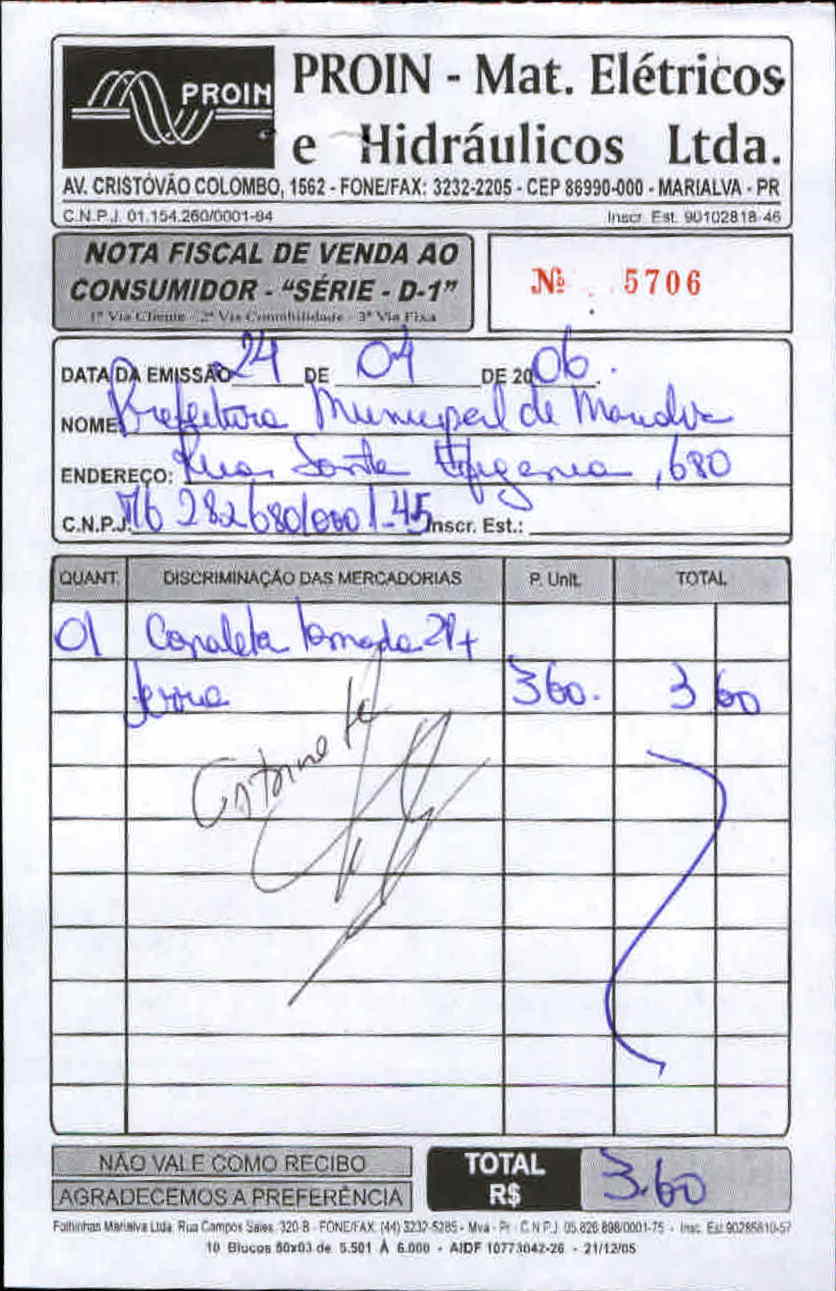 PROIN
PROIN - Mat. Elétricos
e Hidráulicos Ltda.
AV. CRISTÓVÃO COLOMBO, 1562 - FONE/FAX: 3232-2205 - CEP 86990-000 - MARIALVA - PR
C.N.P.J. 01.154.260/0001-94 Inscr. Est. 90102818-46
NOTA FISCAL DE VENDA AO
CONSUMIDOR - "SÉRIE - D-1"
1ª Via Cliente - 2ª Via Contabilidade - 3ª Via Fixa
Nº 5706
DATA DA EMISSÃO 24 DE 04 DE 2006.
NOME: Prefeitura Municipal de Marialva
ENDEREÇO: Rua Santa Efigenia, 680
C.N.P.J. 76 282680/0001-45 Inscr. Est.:
QUANT. DISCRIMINAÇÃO DAS MERCADORIAS P. Unit. TOTAL
01 Canaleta tomada 2P+
terra 360. 3 60
NÃO VALE COMO RECIBO
AGRADECEMOS A PREFERÊNCIA
TOTAL
R$ 3.60
Folhinhas Marialva Ltda. Rua Campos Sales, 320-B - FONE/FAX: (44) 3232-5285 - Mva - Pr - C.N.P.J. 05.828.898/0001-75 - Insc. Est. 90285810-57
10 Blocos 50x03 de 5.501 À 6.000 - AIDF 10773042-26 - 21/12/05